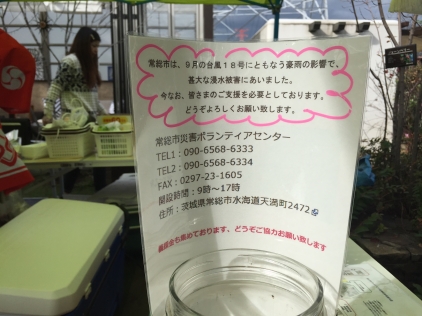 常総市は、9月の台風18号にともなう豪雨の影響で、
甚大な浸水被害にあいました。
今なお、皆さまのご支援を必要としております。
どうぞよろしくお願い致します。
常総市災害ボランティアセンター
TEL1：090-6568-6333
TEL2：090-6568-6334
FAX：0297-23-1605
開設時間：9時～17時
住所：茨城県常総市水海道天満町2472
義援金も集めております、どうぞご協力お願い致します